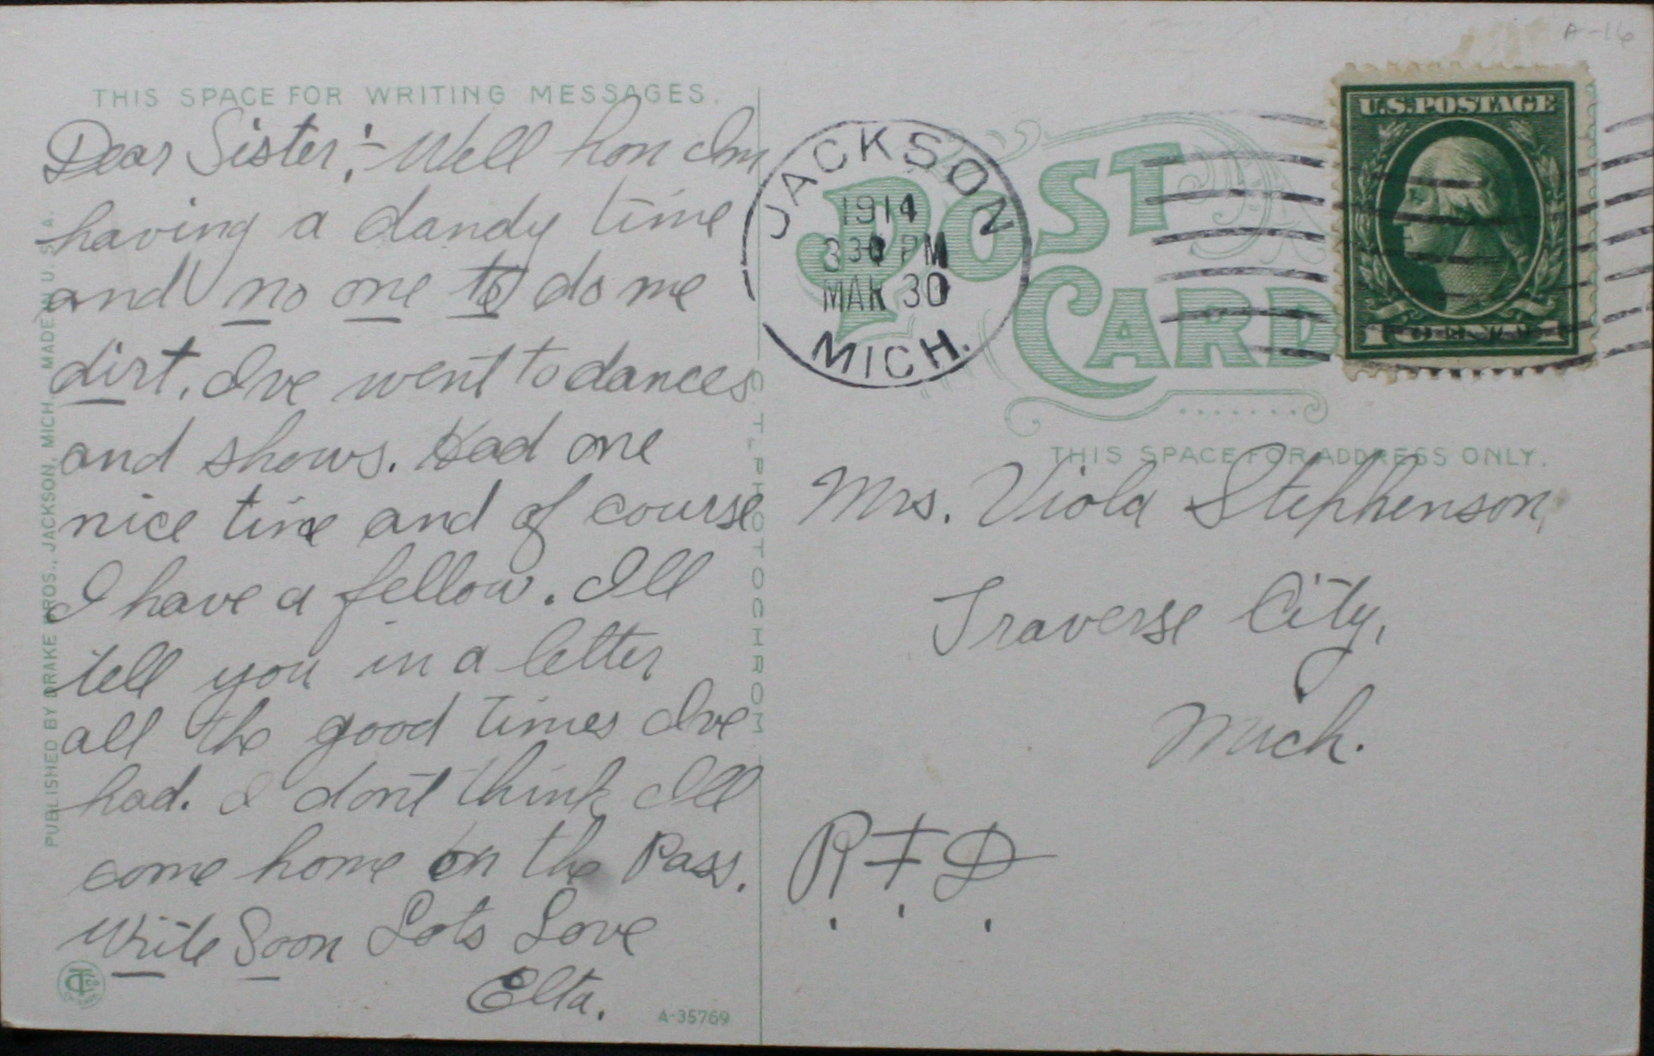 A-16
THIS SPACE FOR WRITING MESSAGES.
Dear Sister;- Well hon Im
having a dandy time
and no one to do me
dirt. Ive went to dances
and shows. Had one
nice time and of course
I have a fellow. Ill
tell you in a letter
all the good times Ive
had. I don't think Ill
come home on the Pass.
Write Soon Lots Love
Elta.
A-35769
PUBLISHED BY DRAKE BROS., JACKSON, MICH. MADE IN U. S. A.
C. T. PHOTOCHROM
JACKSON
1914
330 PM
MAR 30
MICH.
POST
CARD
U.S.POSTAGE
THIS SPACE FOR ADDRESS ONLY.
Mrs. Viola Stephenson,
Traverse City,
Mich.
R.F.D.